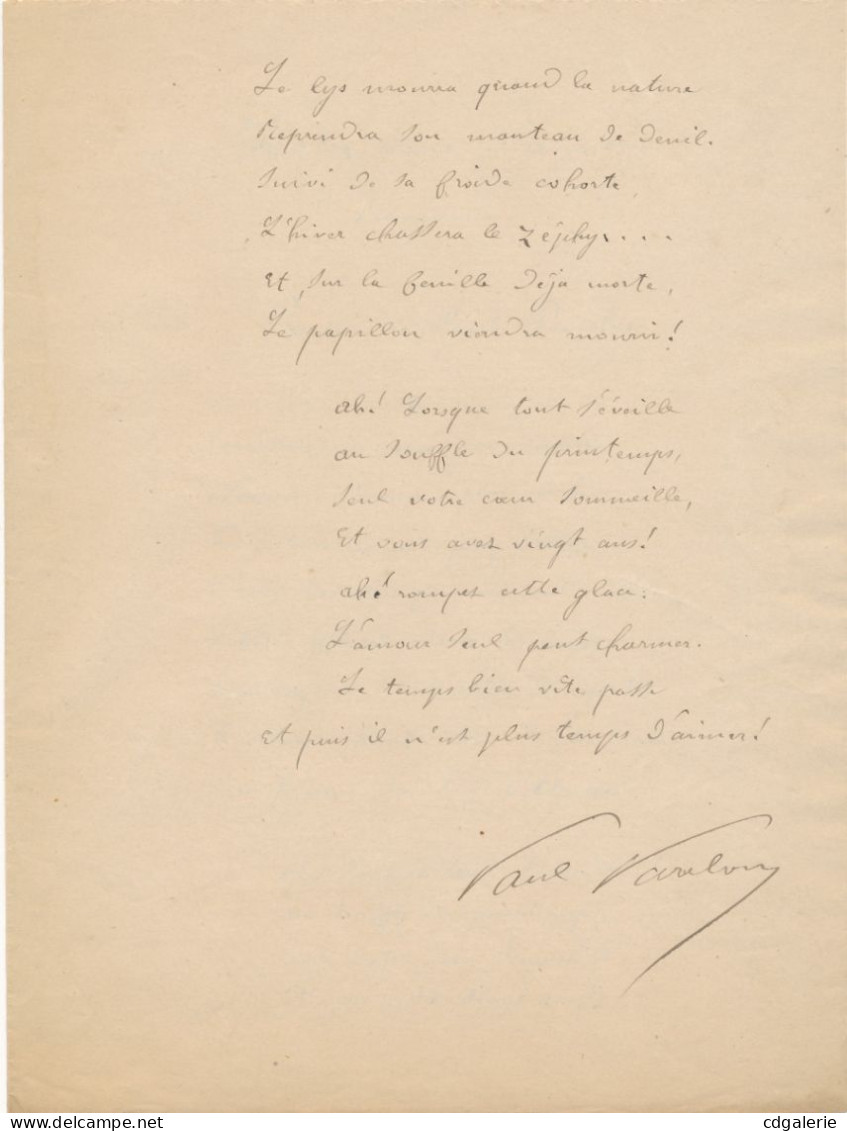 Le lys mourra quand la nature
Reprendra son manteau de deuil.
Suivi de sa froide cohorte
L'hiver chassera le zéphyr....
Et, sur la feuille déjà morte,
Le papillon viendra mourir!
ah! Lorsque tout s'éveille
au souffle du printemps,
Seul votre cœur sommeille,
Et vous avez vingt ans!
ah! rompez cette glace:
L'amour seul peut charmer.
Le temps bien vîte passe
Et puis il n'est plus temps d'aimer!
Paul
delcampe.net
cdgalerie